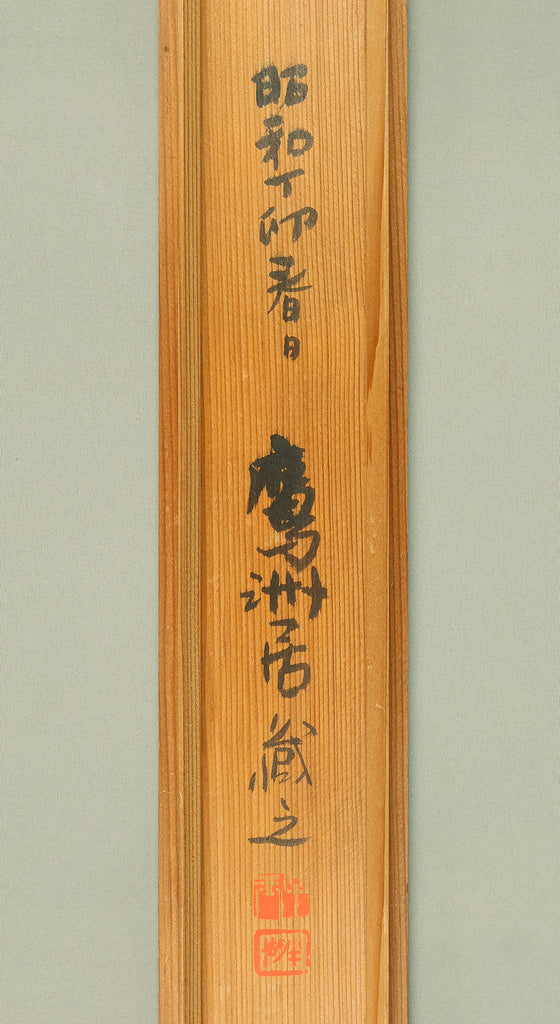 昭和丁卯春日　鷹洲居蔵之